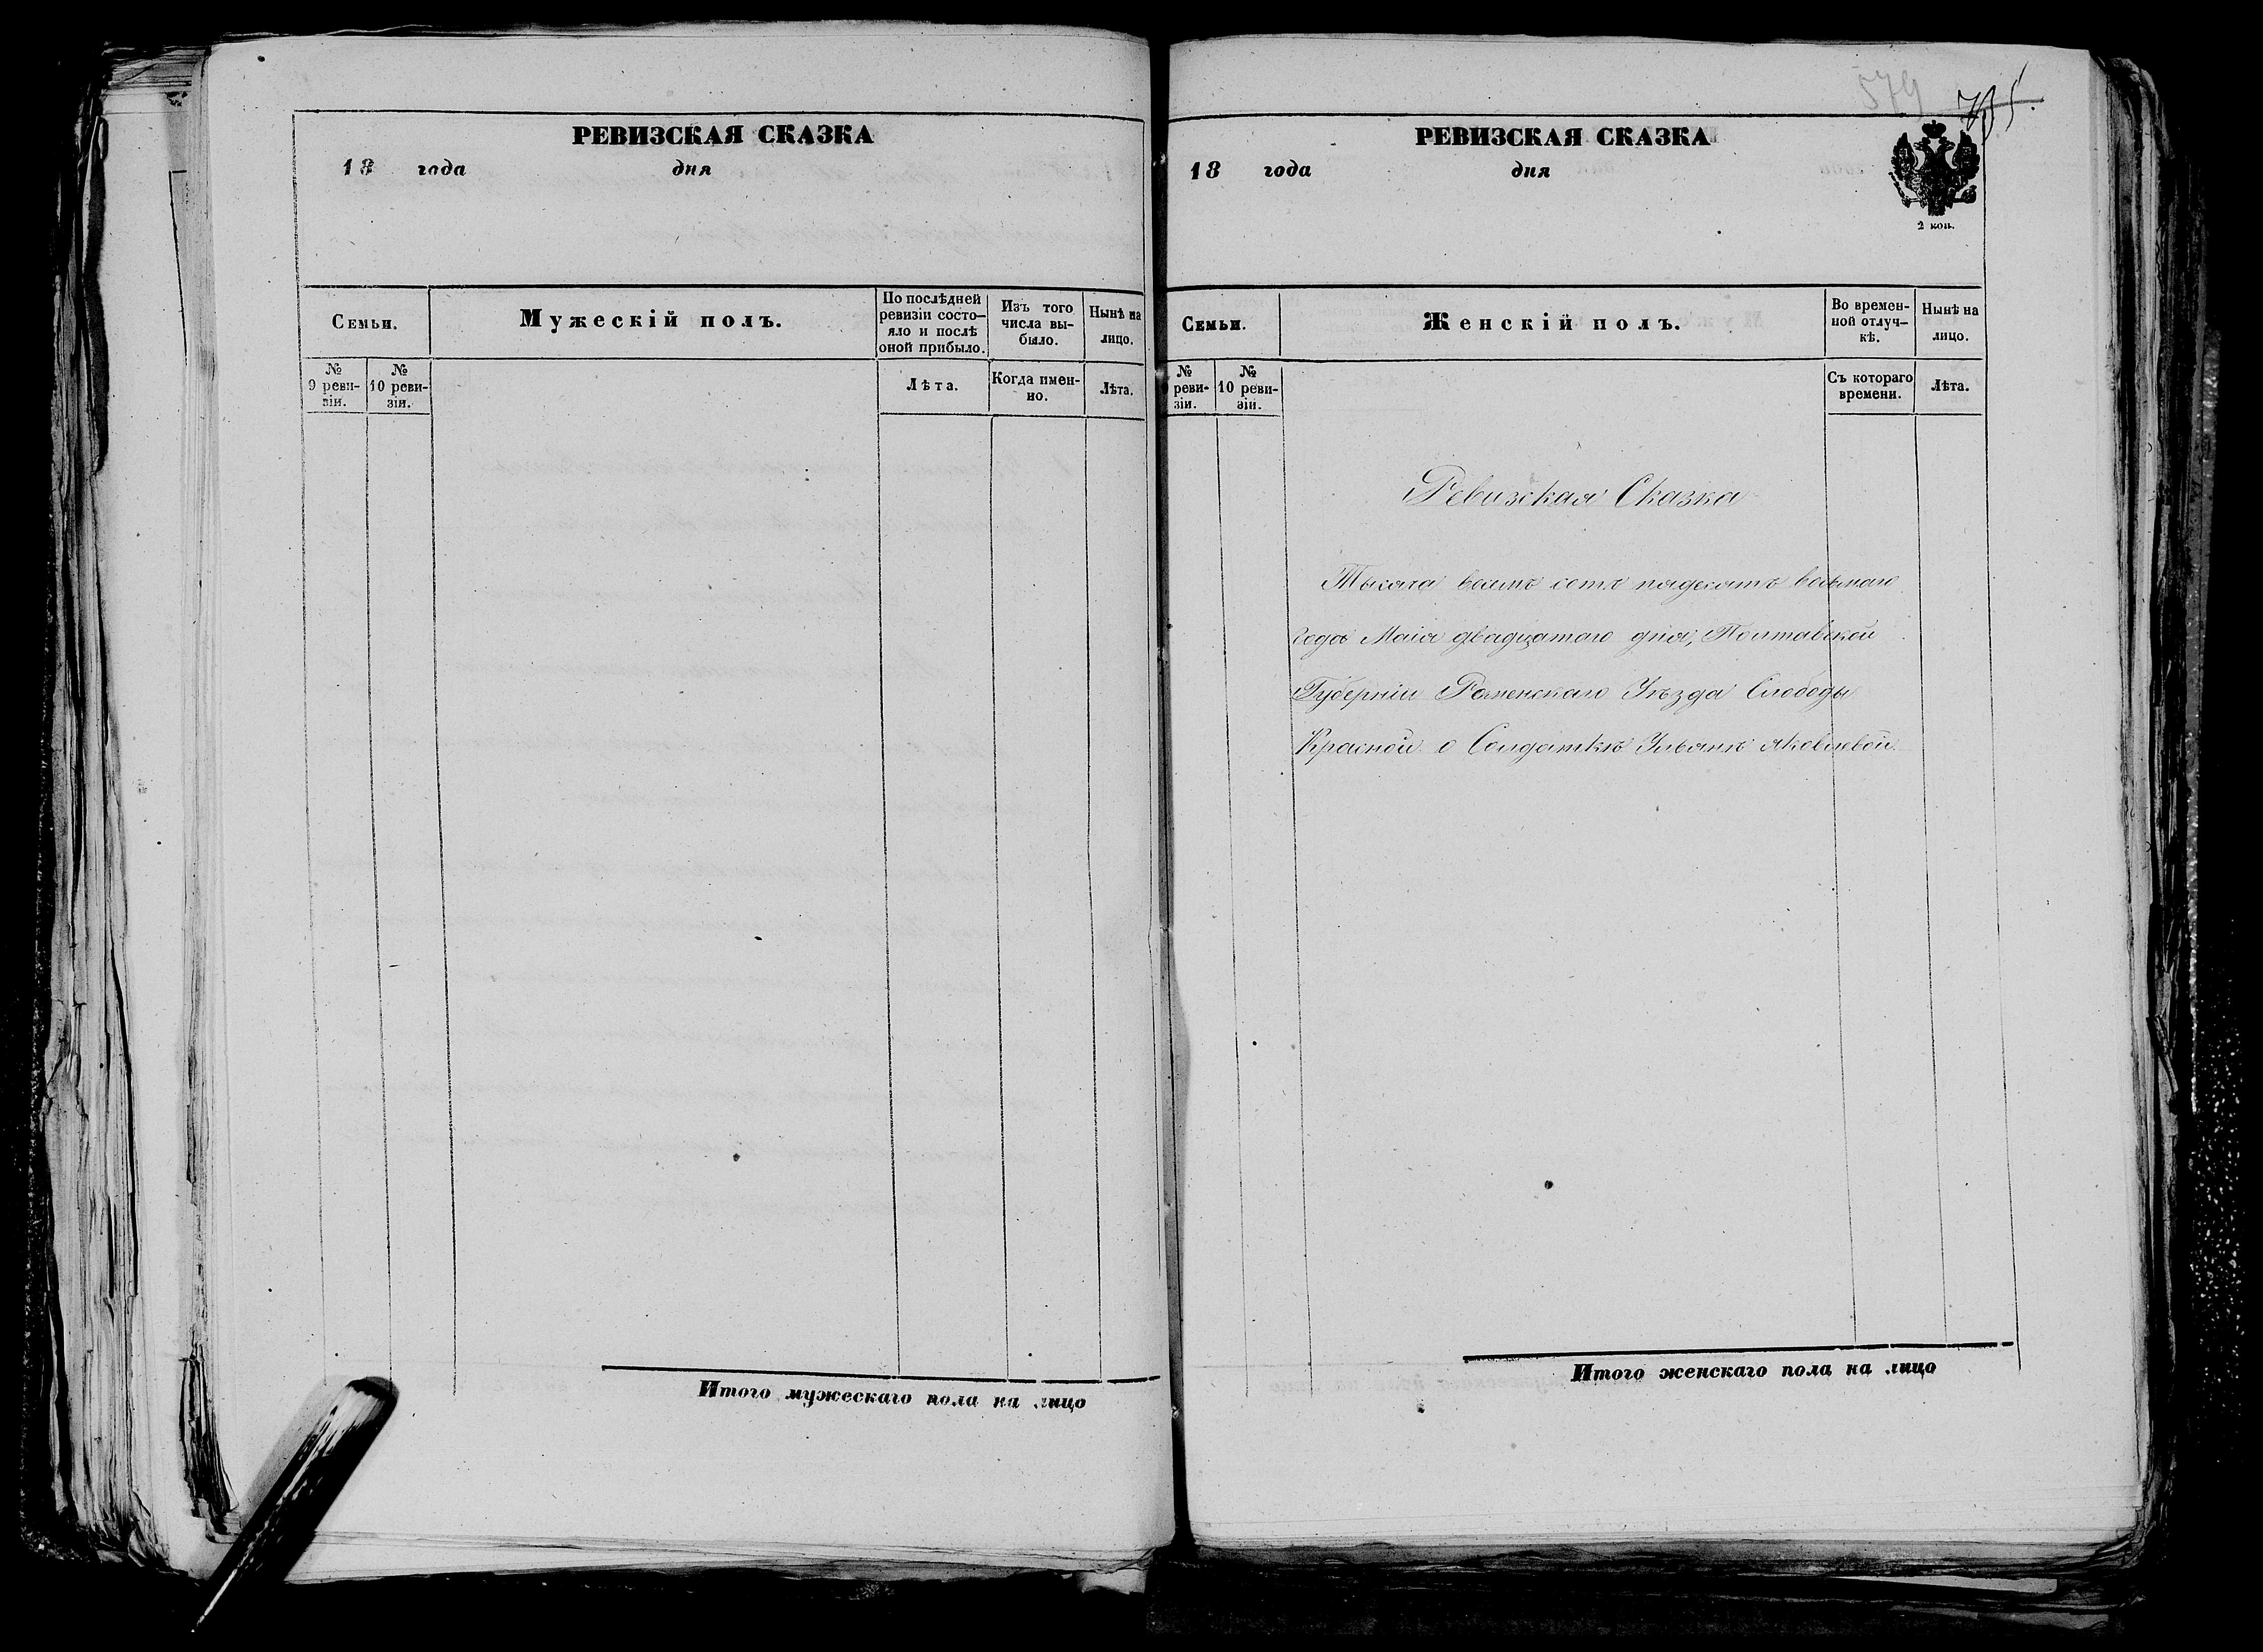 РЕВИЗСКАЯ СКАЗКА
18 года дня
Семьи.
Мужескій полъ.
По послѣдней ревизіи состо-
яло и послѣ
оной прибыло.
Изъ того
числа вы-
было.
Нынѣ на
лицо.
№
9 реви-
зіи.
№
10 реви-
зіи.
Лѣта.
Когда имен-
но.
Лѣта.
Итого мужескаго пола на лицо
579
РЕВИЗСКАЯ СКАЗКА
18 года дня
2 коп.
Семьи.
Женскій полъ.
Во времен-
ной отлуч-
кѣ.
Нынѣ на
лицо.
№
реви-
зіи.
№
10 реви-
зіи.
Съ котораго
времени.
Лѣта.
Ревизская Сказка
Тысяча восемъ сотъ пядесятъ восьмаго
года Маія двадцатаго дня, Полтавской
Губерніи Роменскаго Уѣзда Слободы
Красной о Солдаткѣ Ульянѣ Яковлевой
Итого женскаго пола на лицо